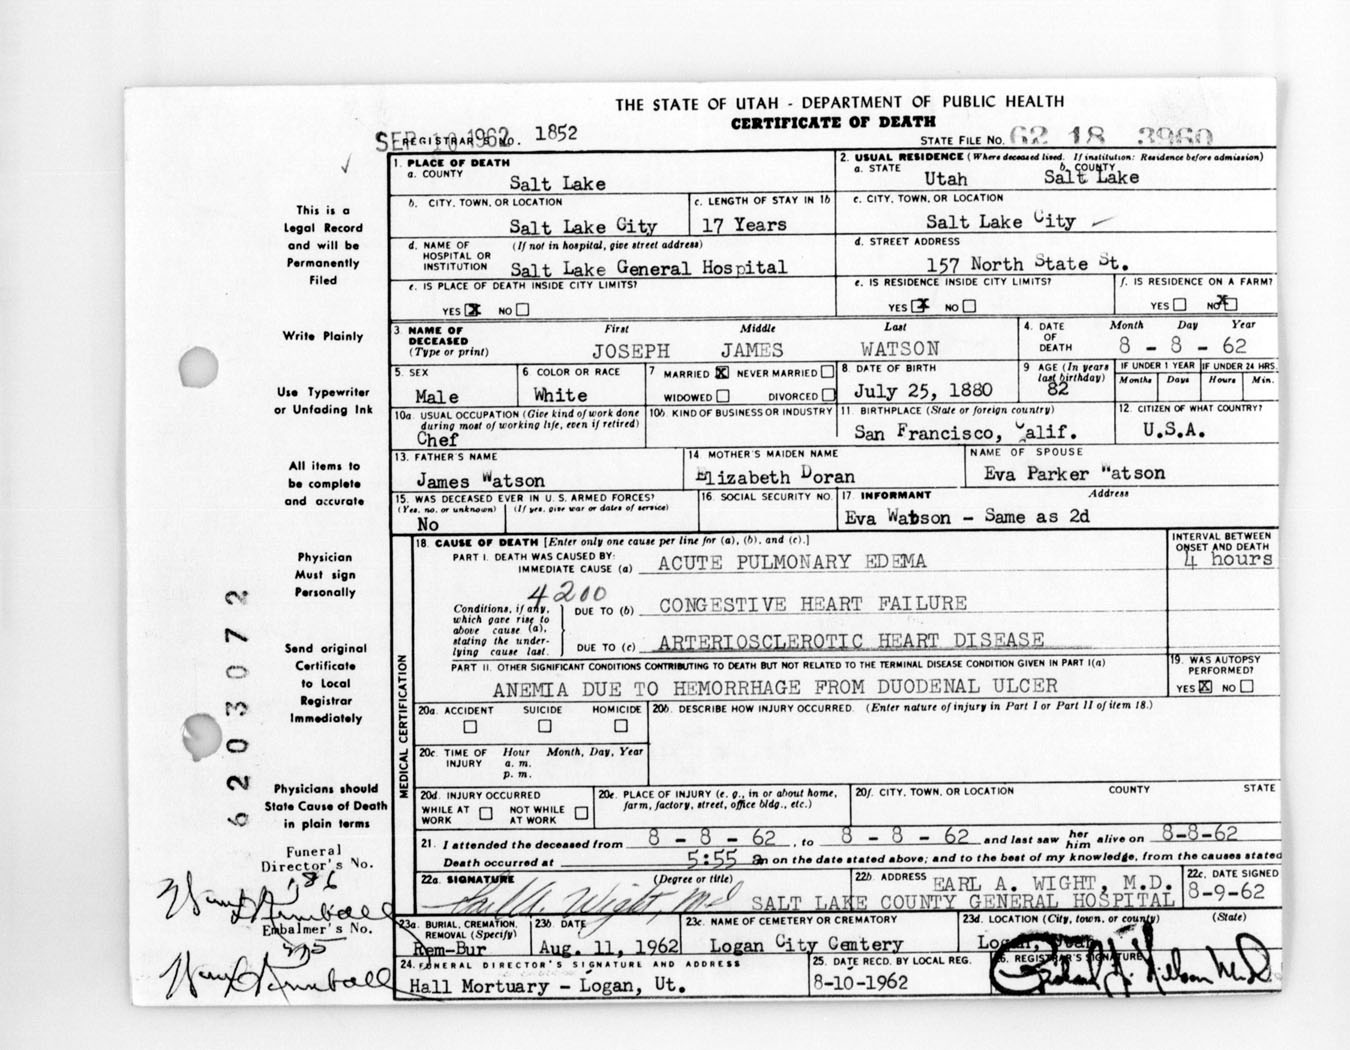 THE STATE OF UTAH - DEPARTMENT OF PUBLIC HEALTH
CERTIFICATE OF DEATH
SEP 10 1962
REGISTRAR'S NO. 1852
STATE FILE NO. 62 18 3960
This is a
Legal Record
and will be
Permanently
Filed
Write Plainly
Use Typewriter
or Unfading Ink
All items to
be complete
and accurate
Physician
Must sign
Personally
Send original
Certificate
to Local
Registrar
Immediately
Physicians should
State Cause of Death
in plain terms
Funeral
Director's No.
186
Embalmer's No.
6203072
1. PLACE OF DEATH
a. COUNTY
Salt Lake
2. USUAL RESIDENCE (Where deceased lived. If institution: Residence before admission)
a. STATE
Utah
b. COUNTY
Salt Lake
b. CITY, TOWN, OR LOCATION
Salt Lake City
c. LENGTH OF STAY IN 1b
17 Years
c. CITY, TOWN, OR LOCATION
Salt Lake City
d. NAME OF HOSPITAL OR INSTITUTION
(If not in hospital, give street address)
Salt Lake General Hospital
d. STREET ADDRESS
157 North State St.
e. IS PLACE OF DEATH INSIDE CITY LIMITS?
YES X NO
e. IS RESIDENCE INSIDE CITY LIMITS?
YES X NO
f. IS RESIDENCE ON A FARM?
YES NO X
3. NAME OF DECEASED
(Type or print)
First Middle Last
JOSEPH JAMES WATSON
4. DATE OF DEATH
Month Day Year
8 - 8 - 62
5. SEX
Male
6 COLOR OR RACE
White
7 MARRIED X NEVER MARRIED
WIDOWED DIVORCED
8. DATE OF BIRTH
July 25, 1880
9 AGE (In years last birthday)
82
IF UNDER 1 YEAR
Months Days
IF UNDER 24 HRS.
Hours Min.
10a. USUAL OCCUPATION (Give kind of work done during most of working life, even if retired)
Chef
10b. KIND OF BUSINESS OR INDUSTRY
11. BIRTHPLACE (State or foreign country)
San Francisco, Calif.
12. CITIZEN OF WHAT COUNTRY?
U.S.A.
13. FATHER'S NAME
James Watson
14 MOTHER'S MAIDEN NAME
Elizabeth Doran
NAME OF SPOUSE
Eva Parker Watson
15. WAS DECEASED EVER IN U. S. ARMED FORCES?
(Yes, no, or unknown) (If yes, give war or dates of service)
No
16. SOCIAL SECURITY NO.
17. INFORMANT Address
Eva Watson - Same as 2d
MEDICAL CERTIFICATION
18. CAUSE OF DEATH [Enter only one cause per line for (a), (b), and (c).]
INTERVAL BETWEEN ONSET AND DEATH
PART I. DEATH WAS CAUSED BY:
IMMEDIATE CAUSE (a) ACUTE PULMONARY EDEMA
4 hours
4200
Conditions, if any, which gave rise to above cause (a), stating the underlying cause last.
DUE TO (b) CONGESTIVE HEART FAILURE
DUE TO (c) ARTERIOSCLEROTIC HEART DISEASE
PART II. OTHER SIGNIFICANT CONDITIONS CONTRIBUTING TO DEATH BUT NOT RELATED TO THE TERMINAL DISEASE CONDITION GIVEN IN PART I(a)
ANEMIA DUE TO HEMORRHAGE FROM DUODENAL ULCER
19. WAS AUTOPSY PERFORMED?
YES X NO
20a. ACCIDENT SUICIDE HOMICIDE
20b. DESCRIBE HOW INJURY OCCURRED. (Enter nature of injury in Part I or Part II of item 18.)
20c. TIME OF INJURY
Hour Month, Day, Year
a. m.
p. m.
20d. INJURY OCCURRED
WHILE AT WORK NOT WHILE AT WORK
20e. PLACE OF INJURY (e. g., in or about home, farm, factory, street, office bldg., etc.)
20f. CITY, TOWN, OR LOCATION COUNTY STATE
21. I attended the deceased from 8 - 8 - 62, to 8 - 8 - 62 and last saw her him alive on 8-8-62
Death occurred at 5:55 m on the date stated above; and to the best of my knowledge, from the causes stated
22a. SIGNATURE (Degree or title)
Earl A. Wight, MD
22b. ADDRESS EARL A. WIGHT, M.D.
SALT LAKE COUNTY GENERAL HOSPITAL
22c. DATE SIGNED
8-9-62
23a. BURIAL, CREMATION, REMOVAL (Specify)
Rem-Bur
23b. DATE
Aug. 11, 1962
23c. NAME OF CEMETERY OR CREMATORY
Logan City Cemtery
23d. LOCATION (City, town, or county) (State)
Logan, Utah
24. FUNERAL DIRECTOR'S SIGNATURE AND ADDRESS
Hall Mortuary - Logan, Ut.
25. DATE RECD. BY LOCAL REG.
8-10-1962
26. REGISTRAR'S SIGNATURE